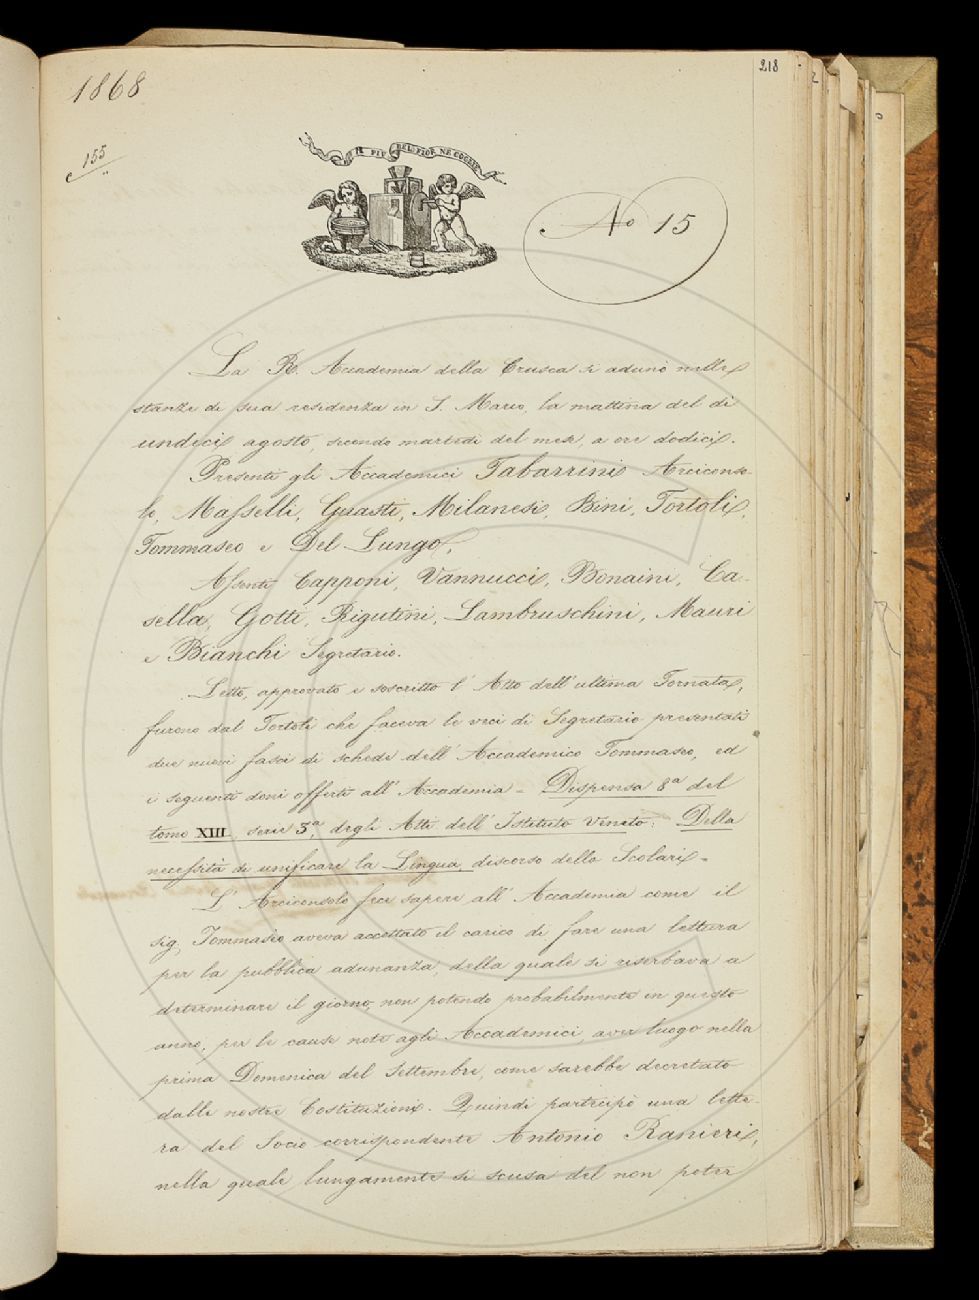 1868
218
155
IL PIÙ BEL FIOR NE COGLIE
No 15
La R. Accademia della Crusca si adunò nelle
stanze di sua residenza in S. Marco, la mattina del dì
undici agosto, secondo martedì del mese, a ore dodici.
Presenti gli Accademici Tabarrini Arciconso-
lo, Masselli, Guasti, Milanesi, Bini, Tortoli,
Tommaseo e Del Lungo,
Assenti Capponi, Vannucci, Bonaini, Ca-
sella, Gotti, Rigutini, Lambruschini, Mauri
e Bianchi Segretario.
Letto, approvato e soscritto l'Atto dell'ultima Tornata,
furono dal Tortoli che faceva le veci di Segretario presentati
due nuovi fasci di schede dell'Accademico Tommaseo, ed
i seguenti doni offerti all'Accademia = Dispensa 8a del
tomo XIII, serie 3a, degli Atti dell'Istituto Veneto: Della
necessità di unificare la Lingua, discorso dello Scolari =
L'Arciconsolo fece sapere all'Accademia come il
sig. Tommaseo aveva accettato il carico di fare una lettura
per la pubblica adunanza, della quale si riserbava a
determinare il giorno, non potendo probabilmente in questo
anno, per le cause note agli Accademici, aver luogo nella
prima Domenica del Settembre, come sarebbe decretato
dalle nostre Costituzioni. Quindi partecipò una lette-
ra del Socio corrispondente Antonio Ranieri,
nella quale lungamente si scusa del non poter